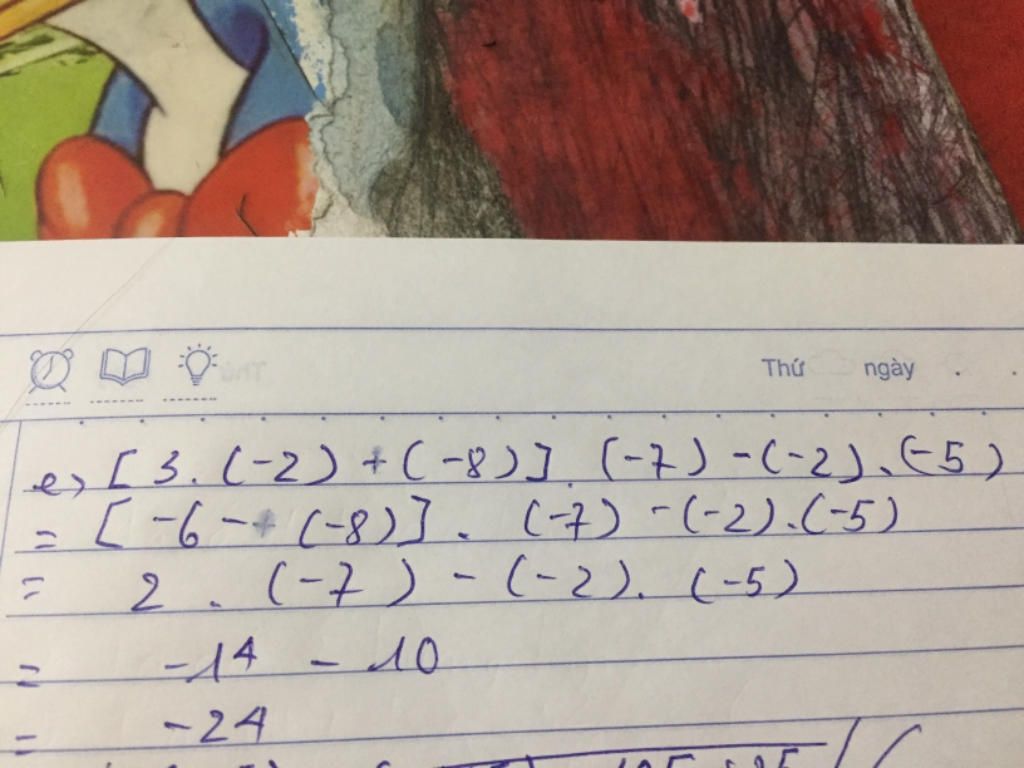 Thứ ngày
e) [ 3. (-2) + (-8) ]. (-7) - (-2). (-5)
= [ -6 - (-8) ]. (-7) - (-2). (-5)
= 2 . (-7) - (-2). (-5)
= -14 - 10
= -24